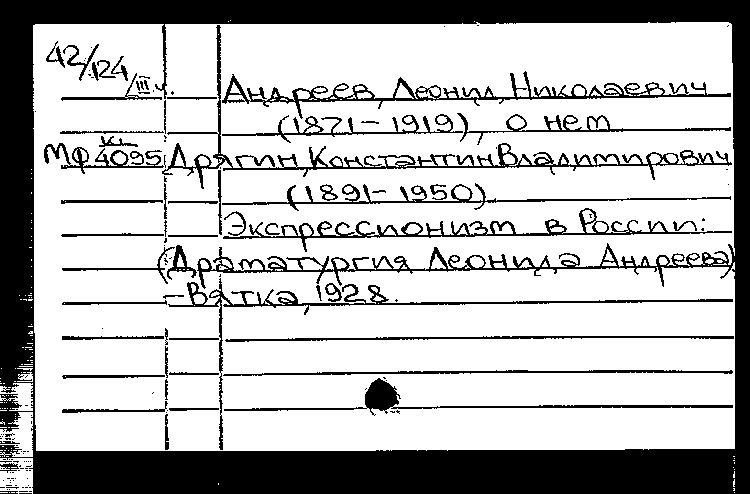 42/124/III ч.
Андреев, Леонид Николаевич
(1871-1919), о нем
МФ 4095 Дрягин, Константин Владимирович
(1891-1950)
Экспрессионизм в России:
(Драматургия Леонида Андреева)
-Вятка, 1928.